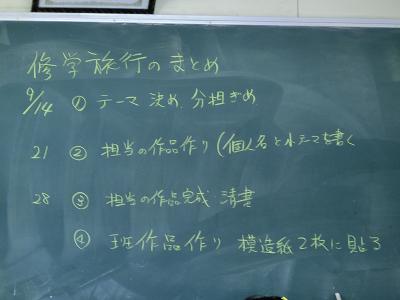 修学旅行のまとめ
9/14 ① テーマ決め、分担ぎめ
21 ② 担当の作品作り(個人名と小テーマを書く
28 ③ 担当の作品完成 清書
④ 班作品作り 模造紙2枚に貼る